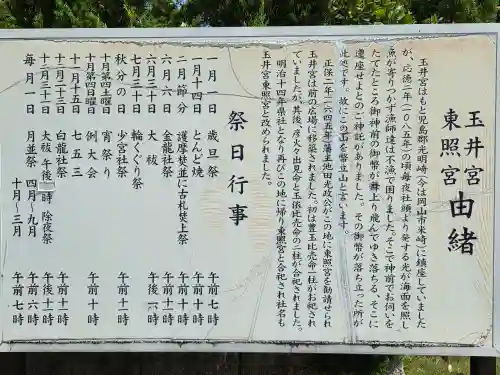 玉井宮
東照宮
由緒
玉井宮はもと児島郡光明崎(今は岡山市米崎)に鎮座していました
が、応徳二年(一〇八五年)の頃毎夜社頭より発する光が海面を照し
魚が寄りつかず漁師達は不漁で困りました。そこで神前でお伺いを
たてたところ御神前の御幣が舞上り飛んでゆき落ちる、そこに
遷座せよとのご神託がありました。その御幣が落ち立った所が
此処です。故にこの山を幣立山と言います。
正保二年(一六四五年)藩主池田光政公がこの地に東照宮を勧請せられ
玉井宮は前の広場に移築されました。初は豊玉比売命一柱がお祀され
ていましたが、其後、彦火々出見命と玉依比売命の二柱が合祀されました。
明治十四年県社となり再びこの地に帰り東照宮と合祀され社名も
玉井宮東照宮と改められました。
祭日行事
一月一日 歳旦祭 午前七時
一月十四日 とんど焼 午前十時
二月節分 護摩焚並に古札焚上祭 午前十時
六月六日 金龍社祭 午前十一時
六月三十日 大祓
七月三十日 輪くぐり祭
秋分の日 少宮社祭 午前十一時
十月第四土曜日 宵祭り
十月第四日曜日 例大会 午前十時
十一月十五日 七五三
十二月十一日 白龍社祭 午前十一時
十二月三十一日 大祓 除夜祭 午後十一時
毎月一日 月並祭 四月~九月 午前六時
十月~三月 午前七時